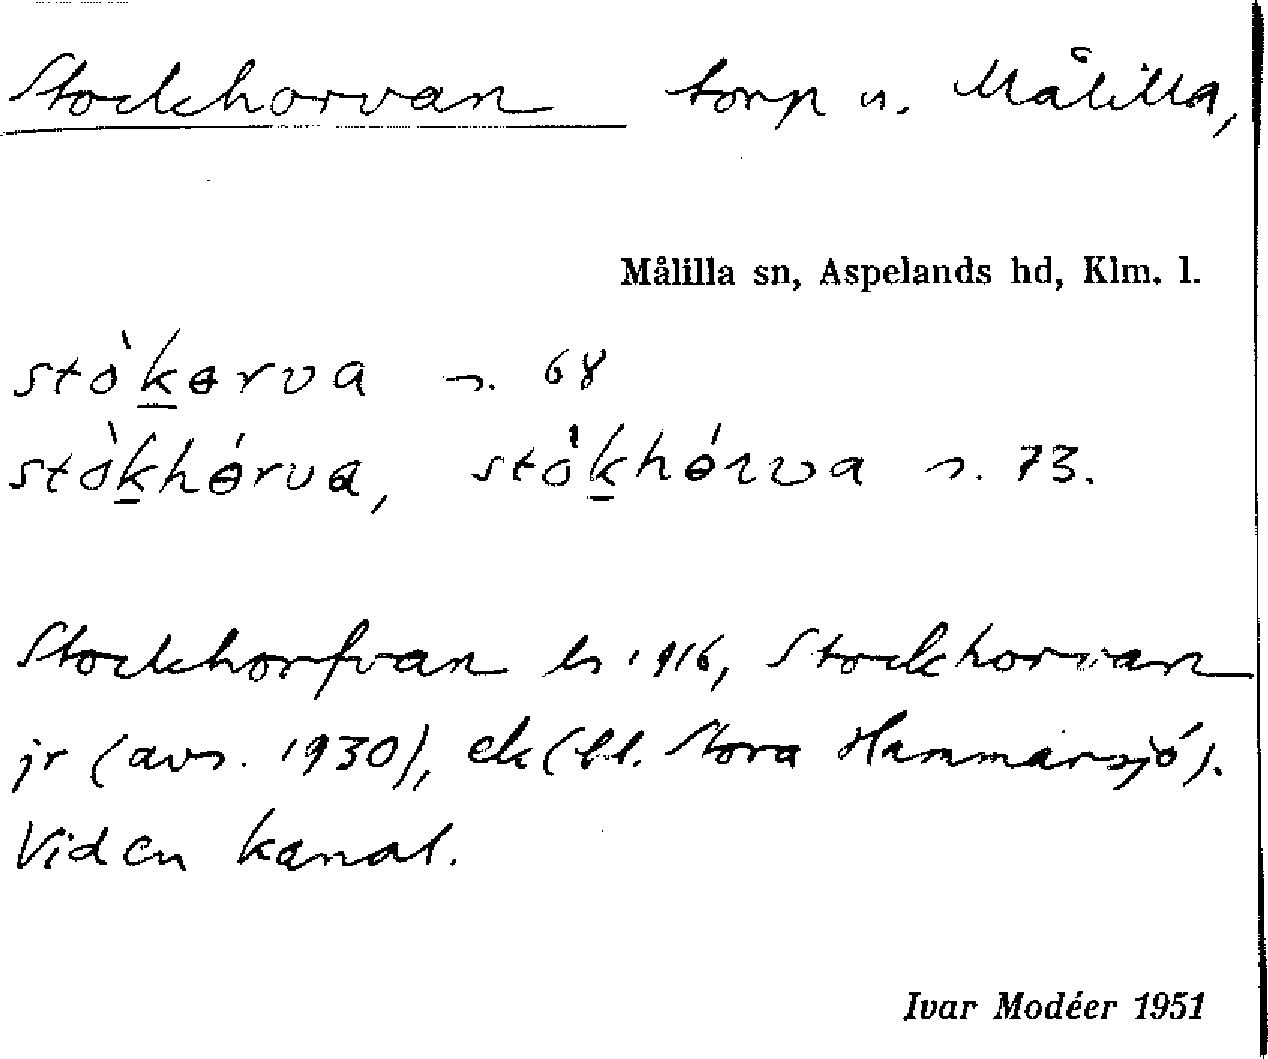 Stockhorvan torp u. Målilla,
Målilla sn, Aspelands hd, Klm. l.
stòkɵrva s. 68
stòkhɵ́rva, stòkhɵ́rva s. 73.
Stockhorfvan ls 1916, Stockhorvan
jr (avs. 1930), ek (bl. Stora Hammarsjö).
Viden kanal.
Ivar Modéer 1951